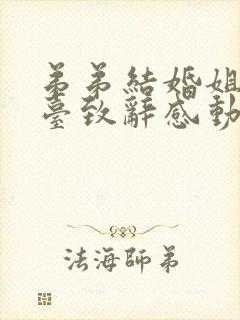 弟弟結婚姐
臺致辭感動
法海師弟